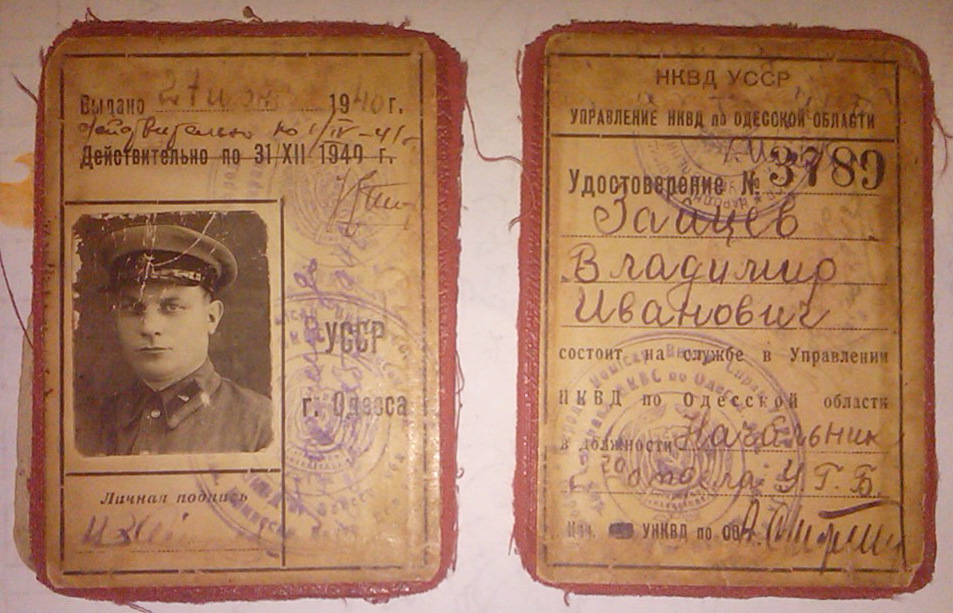 Выдано 27 1940 г.
действительно по 1/IV-41 г.
Действительно по 31/XII 1940 г.
УССР
г. Одесса
Личная подпись
НКВД УССР
УПРАВЛЕНИЕ НКВД по ОДЕССКОЙ ОБЛАСТИ
Удостоверение № 3789
Зайцев
Владимир
Иванович
состоит на службе в Управлении
НКВД по Одесской области
в должности Начальник
2го отдела У.Г.Б.
Нач. УНКВД по ОО